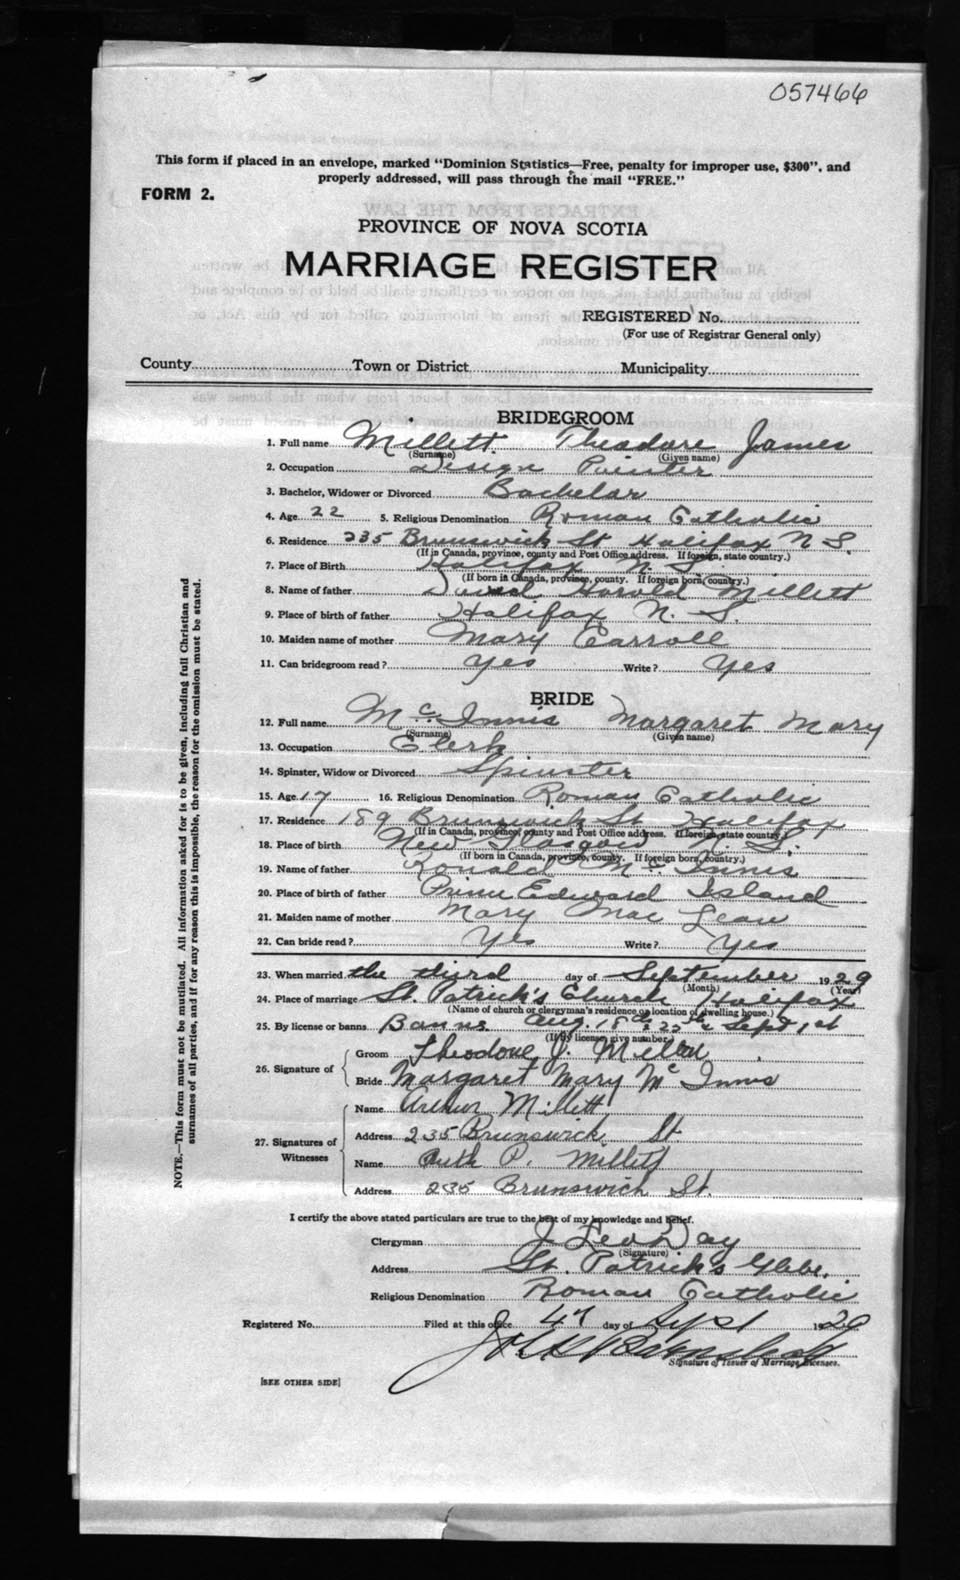 057466
This form if placed in an envelope, marked "Dominion Statistics—Free, penalty for improper use, $300", and
properly addressed, will pass through the mail "FREE."
FORM 2.
PROVINCE OF NOVA SCOTIA
MARRIAGE REGISTER
REGISTERED No.
(For use of Registrar General only)
County Town or District Municipality
BRIDEGROOM
1. Full name Millett Theodore James
(Surname) (Given name)
2. Occupation Design Painter
3. Bachelor, Widower or Divorced Bachelor
4. Age 22 5. Religious Denomination Roman Catholic
6. Residence 235 Brunswick St Halifax N S.
(If in Canada, province, county and Post Office address. If foreign, state country.)
7. Place of Birth Halifax N. S.
(If born in Canada, province, county. If foreign born, country.)
8. Name of father David Harold Millett
9. Place of birth of father Halifax N. S.
10. Maiden name of mother Mary Carroll
11. Can bridegroom read? yes Write? yes
BRIDE
12. Full name McInnis Margaret Mary
(Surname) (Given name)
13. Occupation Clerk
14. Spinster, Widow or Divorced Spinster
15. Age 17 16. Religious Denomination Roman Catholic
17. Residence 189 Brunswick St. Halifax
(If in Canada, province, county and Post Office address. If foreign state country.)
18. Place of birth New Glasgow N. S.
(If born in Canada, province, county. If foreign born, country.)
19. Name of father Ronald McInnis
20. Place of birth of father Prince Edward Island
21. Maiden name of mother Mary Mac Lean
22. Can bride read? Yes Write? Yes
23. When married the third day of September 1929
(Month) (Year)
24. Place of marriage St. Patrick's Church Halifax
(Name of church or clergyman's residence or location of dwelling house.)
25. By license or banns Banns Aug. 18th, 25th & Sept 1st
(If by license, give number)
26. Signature of
Groom Theodore J. Millett
Bride Margaret Mary McInnis
27. Signatures of Witnesses
Name Arthur Millett
Address 235 Brunswick St
Name Ruth P. Millett
Address 235 Brunswick St.
I certify the above stated particulars are true to the best of my knowledge and belief.
Clergyman J. Leo Day
(Signature)
Address St. Patrick's Glebe,
Religious Denomination Roman Catholic
Registered No. Filed at this office 4th day of Sept 1929
Signature of Issuer of Marriage Licenses.
[SEE OTHER SIDE]
NOTE.—This form must not be mutilated. All information asked for is to be given, including full Christian and
surnames of all parties, and if for any reason this is impossible, the reason for the omission must be stated.